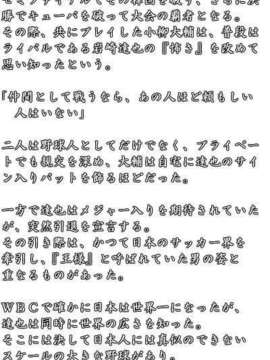 勝でキューバを破って大会の覇者となる。
その際、共にプレイした小柳大輔は、普段は
ライバルである岩崎達也の『怖さ』を改めて
思い知ったという。
「仲間として戦うなら、あの人ほど頼もしい
人はいない」
二人は野球人としてだけでなく、プライベー
トでも親交を深め、大輔は自宅に達也のサイ
ン入りバットを飾るほどだった。
一方で達也はメジャー入りを期待されていた
が、突然引退を宣言する。
その引き際は、かつて日本のサッカー界を
牽引し、『王様』と呼ばれていた男の姿と
重なるものがあった。
ＷＢＣで確かに日本は世界一になったが、
達也は同時に世界の広さを知った。
そこには決して日本人には真似のできない
スケールの大きな野球があり、